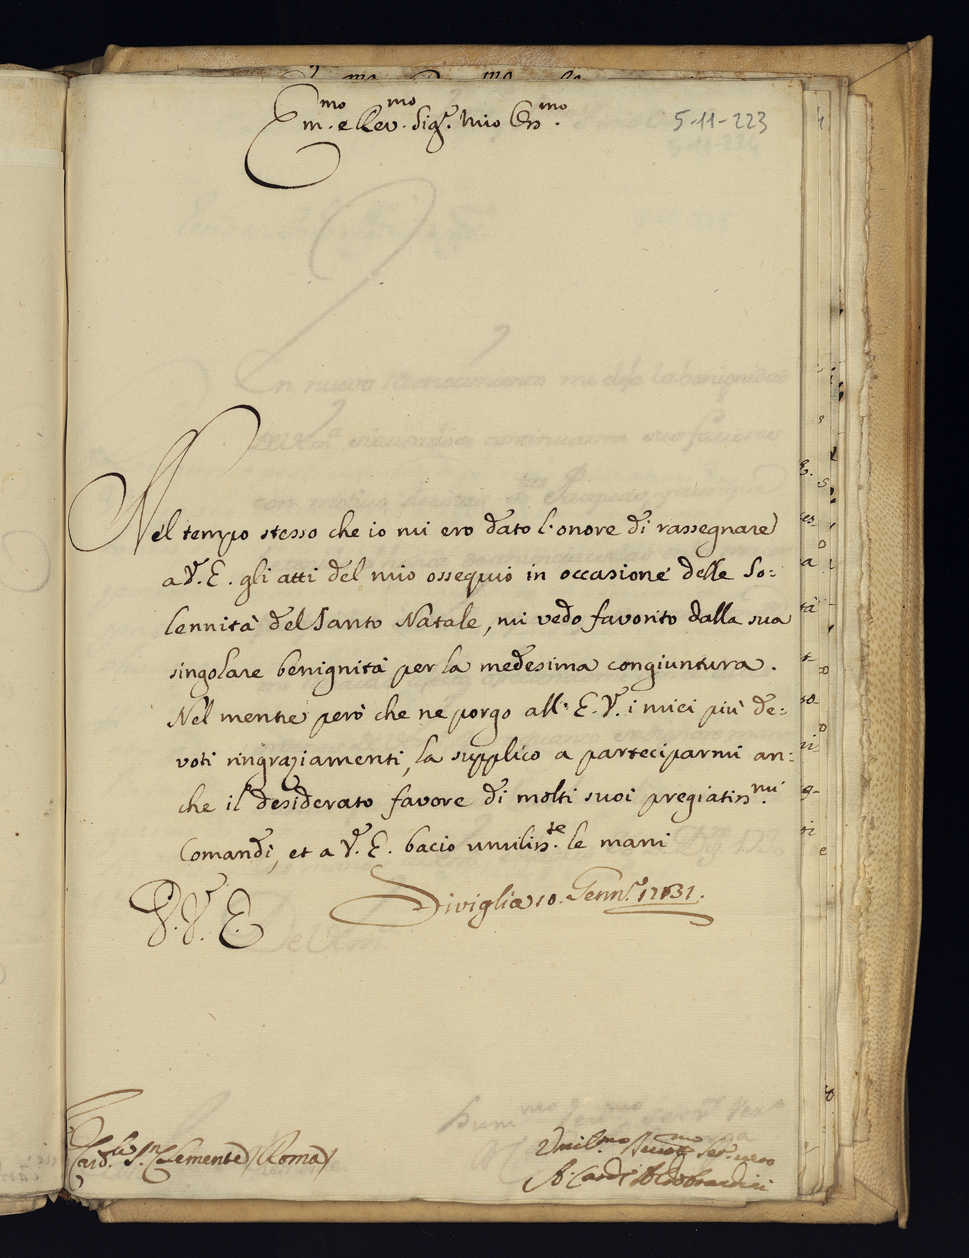 Em.mo e Rev.mo Sig.r mio Oss.mo
5-11-223
Nel tempo stesso che io mi ero dato l'onore di rassegnare
a V. E. gli atti del mio ossequio in occasione delle So=
lennità del Santo Natale, mi vedo favorito dalla sua
singolare benignità per la medesima congiuntura.
Nel mentre però che ne porgo all' E. V. i miei più de=
voti ringraziamenti, la supplico a parteciparmi an=
che il desiderato favore di molti suoi pregiatiss.mi
Comandi, et a V. E. bacio umiliss.te le mani
Siviglia 10. Genn.o 1731.
V. E.
Card.le S. Clemente (Roma)
Umil.mo Serv.r vero
A. Card. Aldobrandini